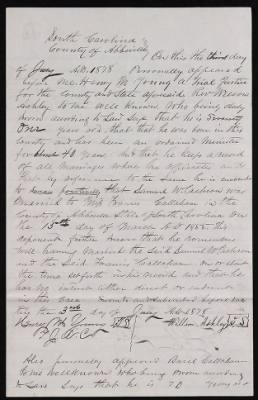 South Carolina
County of Abbeville
On this the third day
of July A.D. 1878 Personally appeared
before me Henry M. Young a Trial Justice
for the County and State aforesaid Rev William
Ashley to me well known who being duly
sworn according to Law Says that he is Seventy
One years old that that he was born in this
County and has been an ordained Minister
for about 40 years and that he keeps a record
of all Marriages where he officiates and
that by reference to the same he is enabled
to positively that Samuel W Cochran was
married to Miss Callaham in the
County of Abbeville State of South Carolina on
the 15th day of March A.D. This
deponent further swears that he remembers
well having married the Said Samuel W Cochran
and the Said Callaham on or about
the time set forth in his record and that he
has no interest either direct or indirect
in this Case Sworn and subscribed before me
this the 3rd day of July A.D. 1878
Henry M. Young LS William Ashley LS
T.J. A.C.
Also personally appeared Basil Callaham
to me well known who being sworn according
to Law Says that he is 70 years old